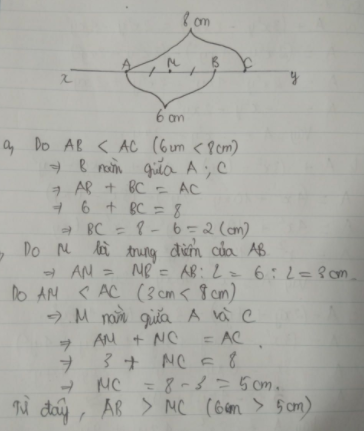 8 cm
x A M B C y
6 cm
a, Do AB < AC (6cm < 8cm)
⇒ B nằm giữa A ; C
⇒ AB + BC = AC
⇒ 6 + BC = 8
⇒ BC = 8 - 6 = 2 (cm)
, Do M là trung điểm của AB
⇒ AM = MB = AB : 2 = 6 : 2 = 3cm.
Do AM < AC (3cm < 8cm)
⇒ M nằm giữa A và C
⇒ AM + MC = AC.
⇒ 3 + MC = 8
⇒ MC = 8 - 3 = 5cm.
Từ đây, AB > MC (6cm > 5cm)